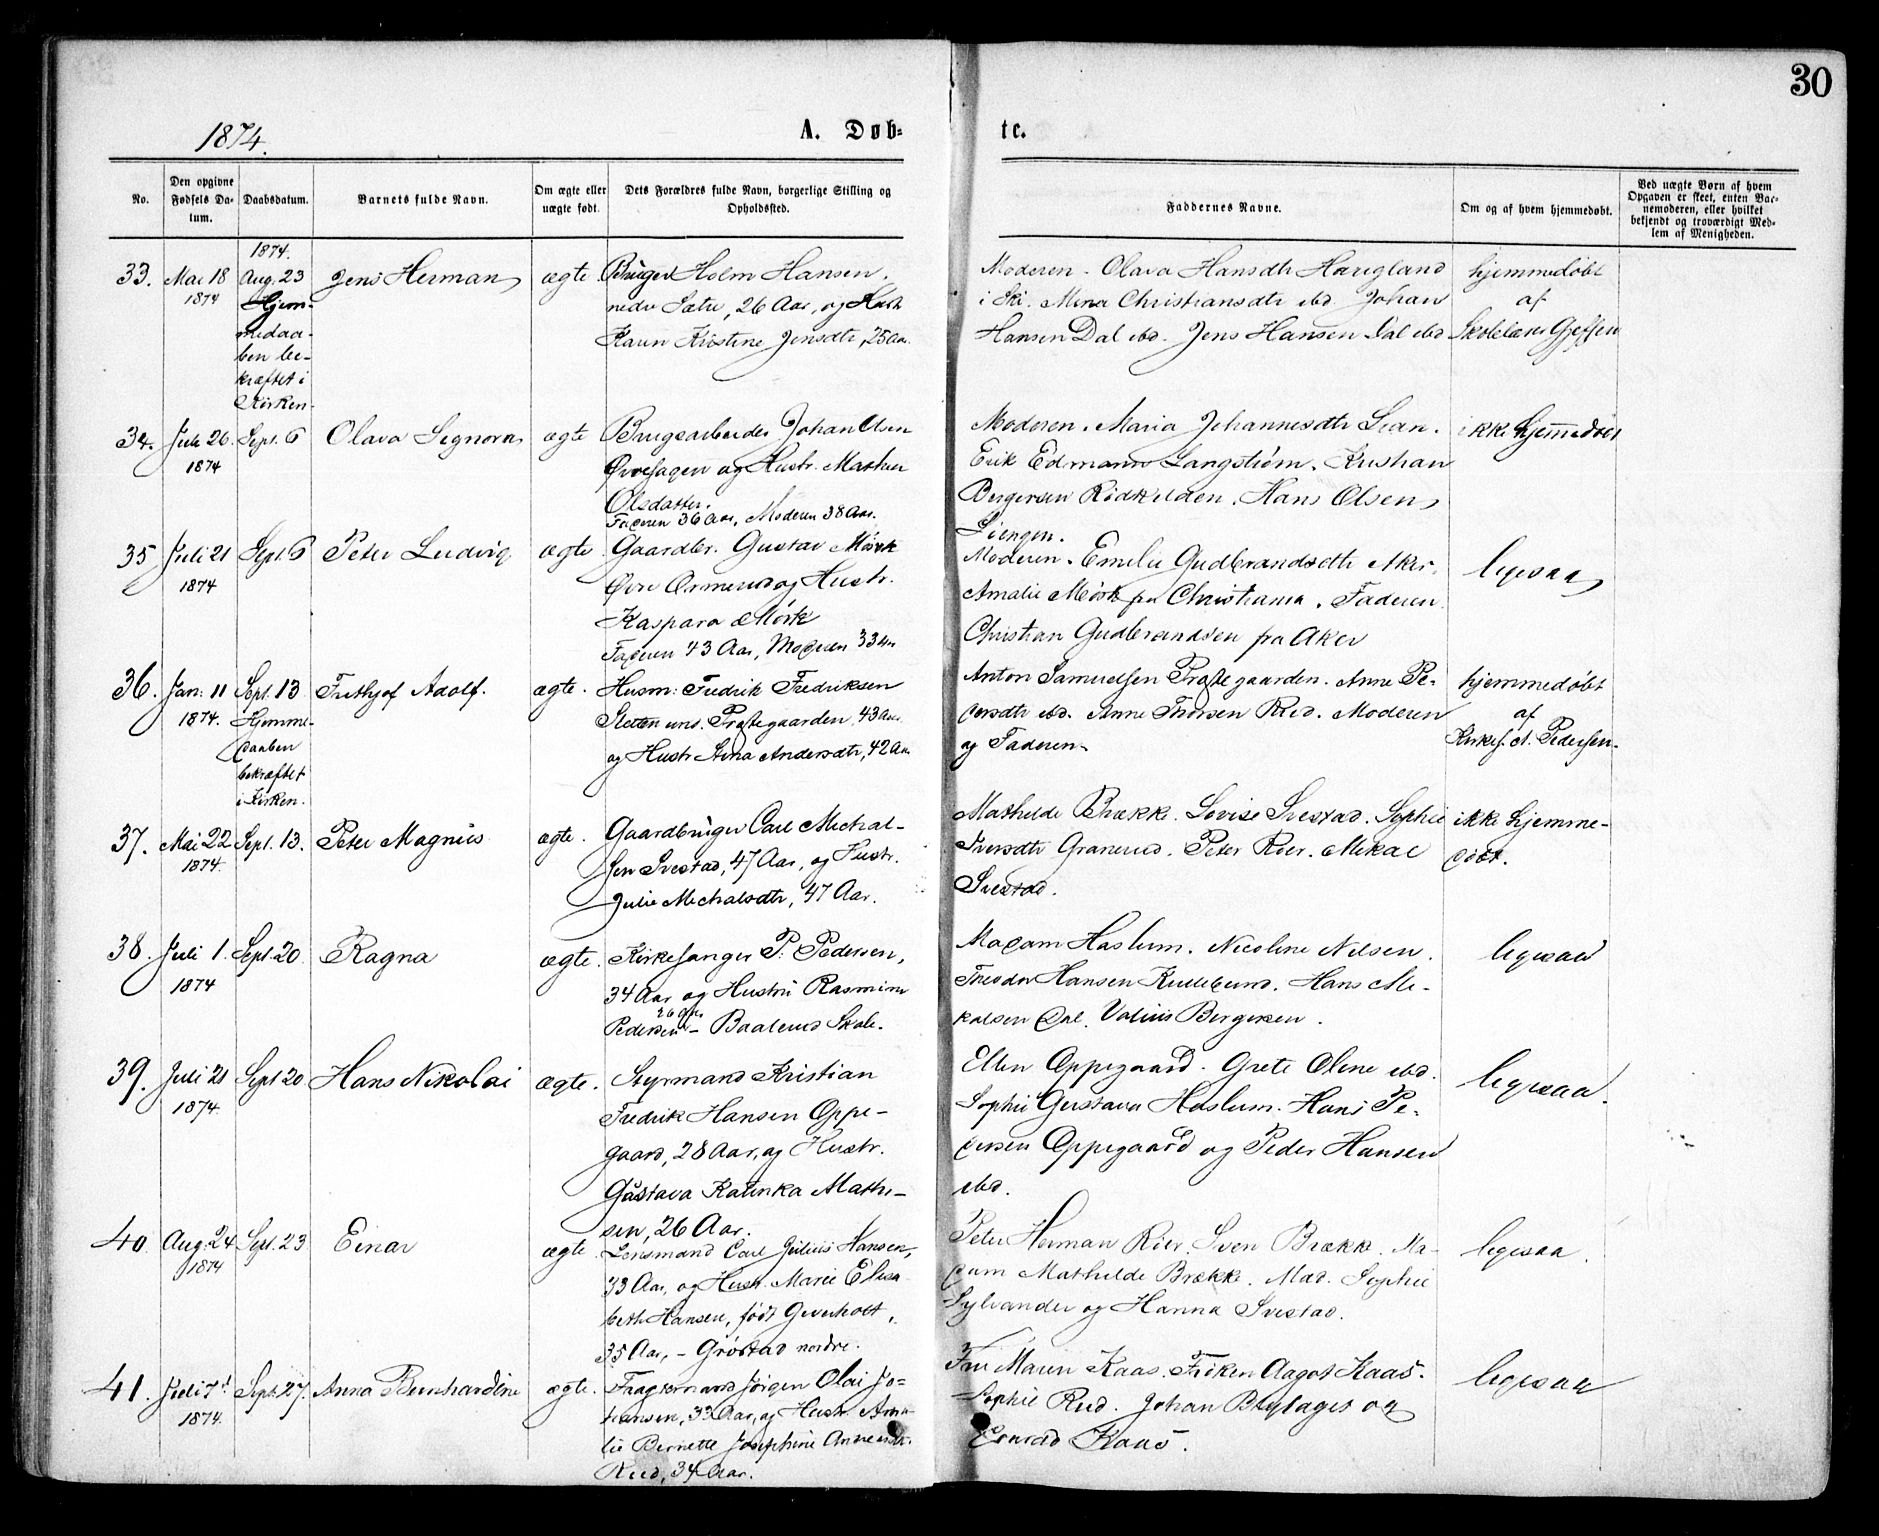 30
1874.
A. Døb-
te.
No.
Den opgivne Fødsels Da-tum.
Daabsdatum.
Barnets fulde Navn.
Om ægte eller uægte født.
Dets Forældres fulde Navn, borgerlige Stilling og Opholdssted.
Faddernes Navne.
Om og af hvem hjemmedøbt.
Ved uægte Børn af hvem Opgaven er skeet, enten Bar-nemoderen, eller hvilket bekjendt og troværdigt Med-lem af Menigheden.
33. Mai 18 1874
1874. Aug. 23
Hjem-
medaa-
ben be-
kræftet i
Kirken.
Jens Herman
ægte
Bruger Holm Hansen.
nedre Sætre, 26 Aar, og Hustr
Karen Kristine Jensdtr, 25 Aar.
Moderen. Olava Hansdtr Haugland
i Ski. Mina Christiansdtr ibd. Johan
Hansen Dal ibd. Jens Hansen Dal ibd
hjemmedøbt
af
34. Juli 26. 1874
Sept. 6
Olava Signora
ægte
Brugsarbeider Johan Olsen
Øvresagen og Hustr. Mathea
Olsdatter.
Faderen 36 Aar, Moderen 38 Aar.
Moderen. Maria Johannesdtr Lian.
Erik Edmann Langstrøm. Kristian
Bergersen Rødkilden. Hans Olsen
Liengen.
ikke hjemmedøbt
35 Juli 21 1874
Sept. 6
Peter Ludvig
ægte
Gaardbr. Gustav Mørk
Øvre Ormerud og Hustr.
Kaspara Mørk
Faderen 43 Aar, Moderen 33 Aar
Moderen. Emelie Gudbrandsdtr Aker.
Amalie Mørk fra Christiania. Faderen.
Christian Gudbrandsen fra Aker
ligesaa
36. Jan: 11 1874.
Sept. 13
Hjemme-
daaben
bekræftet
i Kirken.
Frithjof Adolf.
ægte.
Husm: Fredrik Fredriksen
Sletten und. Præstegaarden 43 Aar
og Hustr Anna Andersdtr, 42 Aar
Anton Samuelsen Præstegaarden. Anne Pe-
dersdtr ibd. Anne Thorsen Rud. Moderen
og Faderen.
hjemmedøbt
af
Kirkes. P. Pedersen.
37. Mai 22 1874.
Sept. 13.
Peter Magnus
ægte.
Gaardbruger Carl Michal-
sen Svestad, 47 Aar, og Hustr.
Julie Michalsdtr, 47 Aar.
Mathilde Brække. Lovise Svestad. Sophie
Iversdtr Granerud. Peter Rier. Mikal
Svestad.
ikke hjemme-
døbt.
38. Juli 1. 1874
Sept. 20
Ragna
ægte.
Kirkesanger P. Pedersen,
34 Aar og Hustru Rasmine
26 Aar
Pedersen - Baalerud Skole.
Madam Haslum. Nicoline Nilsen.
Theodor Hansen Kullebund. Hans Mi-
kalsen Dal. Valius Bergersen.
ligesaa
39. Juli 21 1874.
Sept 20
Hans Nikolai
ægte.
Styrmand Kristian
Fredrik Hansen Oppe-
gaard, 28 Aar, og Hustr.
Gustava Kalinka Mathi-
sen, 26 Aar.
Ellen Oppegaard. Grete Oline ibd.
Sophie Gustava Haslum. Hans Pe-
dersen Oppegaard og Peder Hansen
ibd.
ligesaa.
40. Aug. 24 1874
Sept. 23
Einar
ægte.
Lensmand Carl Julius Hansen,
33 Aar, og Hustr. Marie Elisa-
beth Hansen, født Geverholt,
35 Aar, - Grøstad nordre.
Peter Herman Rier. Sven Brække. Ma-
dam Mathilde Brække. Mad. Sophie
Sylvander og Hanna Svestad.
ligesaa.
41. Juli 7d 1874.
Sept. 27.
Anna Bernhardine
ægte.
Fragtemand Jørgen Olai Jo-
hansen, 33 Aar, og Hustr. Ama-
lie Bernette Josephine
Rud, 34 Aar.
Fru Maren Kaas. Frøken Aagot Kaas.
Sophie Rud. Johan og
Konrad Kaas.
ligesaa